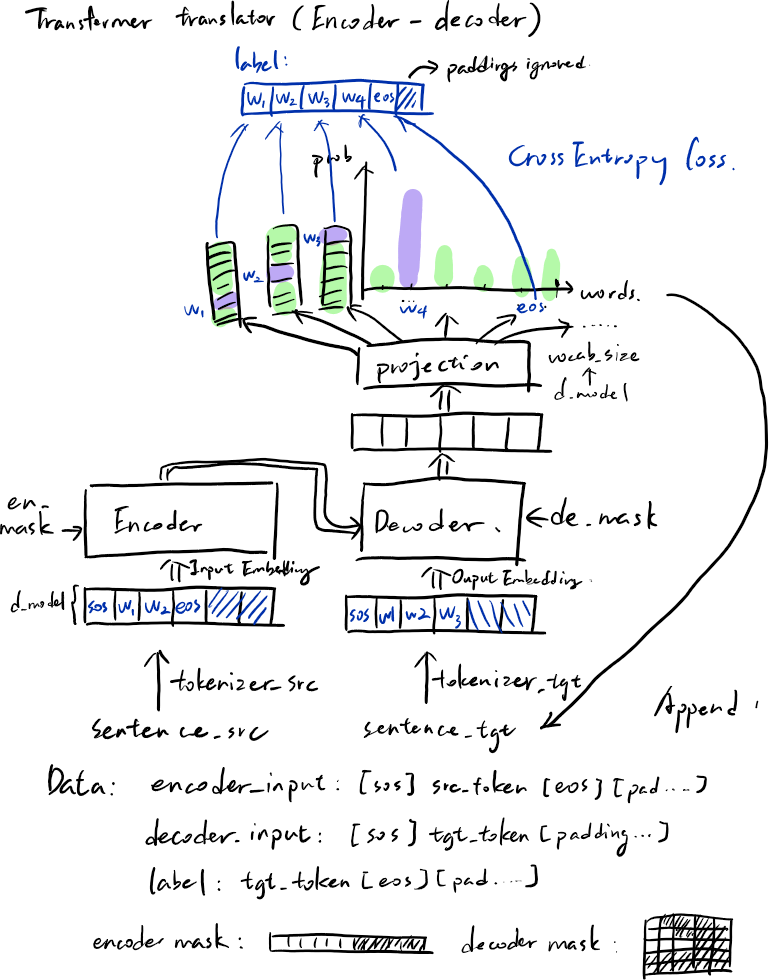 Transformer translator (Encoder - decoder)
label:
paddings ignored.
w1 w2 w3 w4 eos
prob
Cross Entropy loss.
w3
w2
w1
w4
eos.
words.
......
projection
vocab_size
d_model
en_mask
Encoder
Decoder.
de_mask
Input Embedding
Ouput Embedding.
d_model
sos w1 w2 eos
sos w1 w2 w3
tokenizer_src
tokenizer_tgt
sentence_src
sentence_tgt
Append
Data: encoder_input: [sos] src_token [eos] [pad....]
decoder_input: [sos] tgt_token [padding...]
label: tgt_token [eos] [pad....]
encoder mask:
decoder mask: